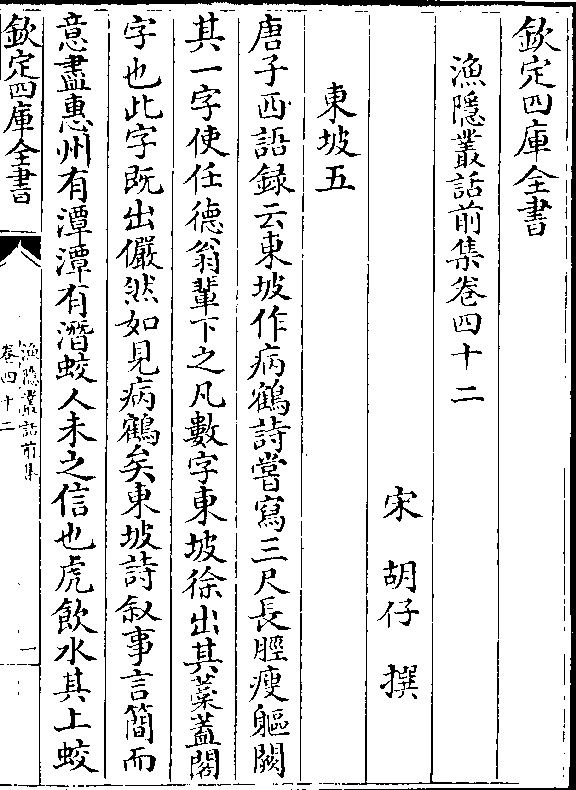 欽定四庫全書
漁隱叢話前集卷四十二
宋 胡仔 撰
東坡五
唐子西語録云東坡作病鶴詩嘗寫三尺長脛瘦軀闕
其一字使任德翁輩下之凡數字東坡徐出其藁蓋閣
字也此字既出儼然如見病鶴矣東坡詩叙事言簡而
意盡惠州有潭潭有潛蛟人未之信也虎飲水其上蛟
欽定四庫全書
漁隱叢話前集
卷四十二
一